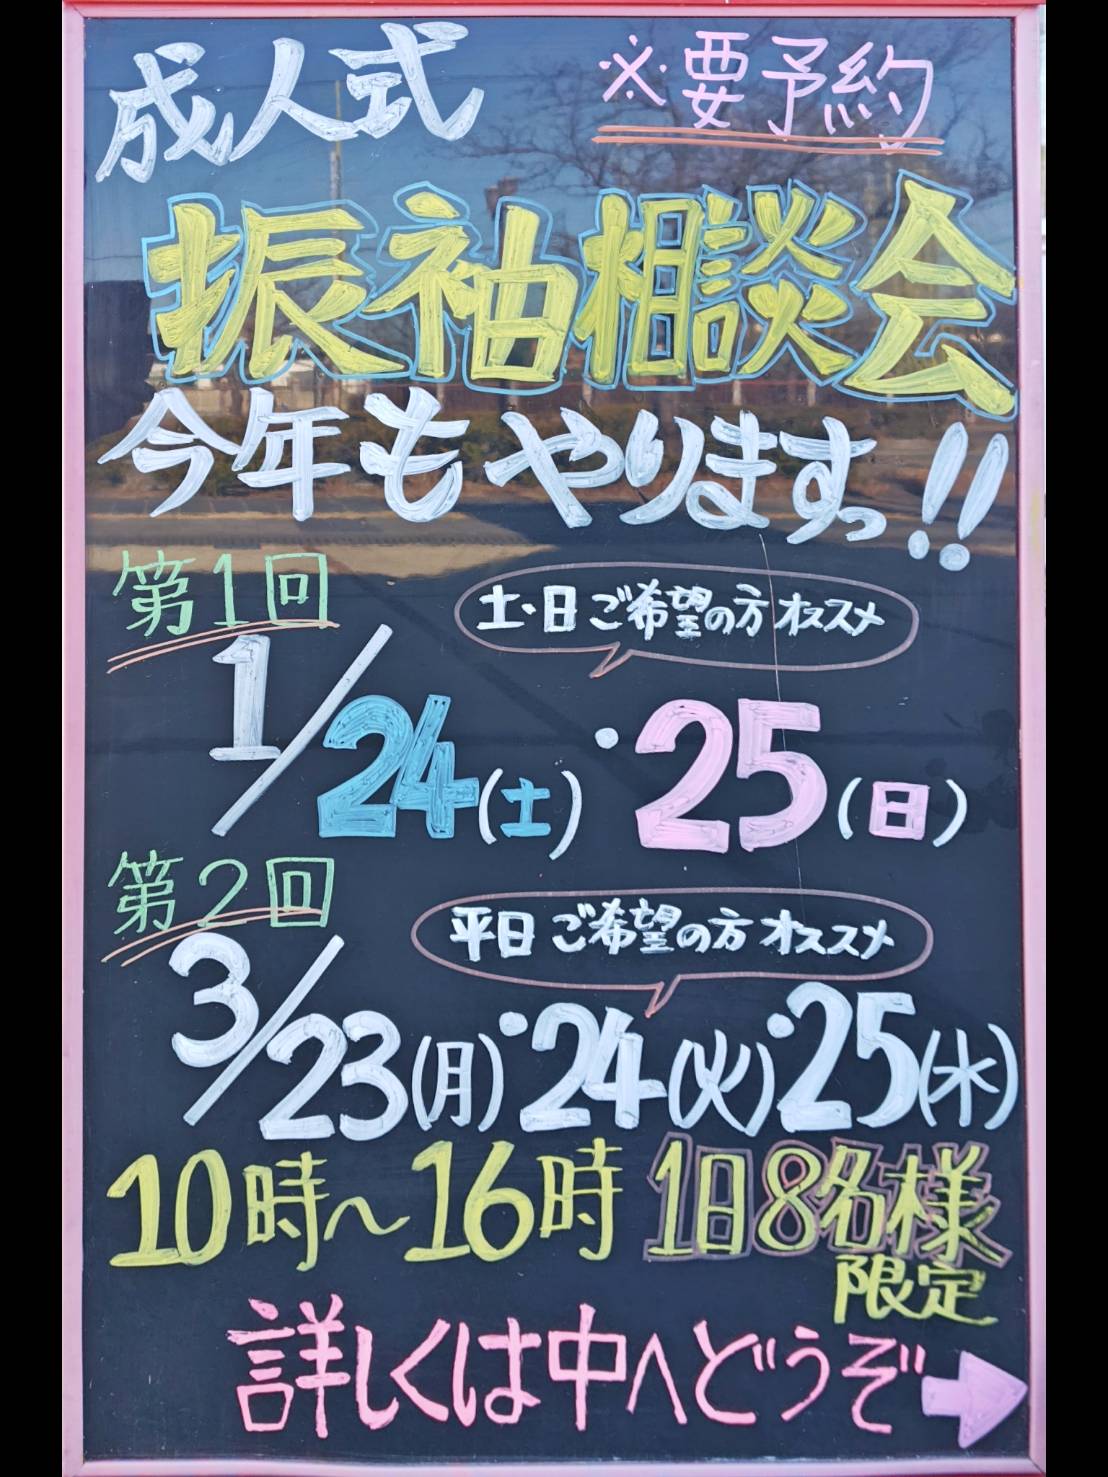 成人式
※要予約
振袖相談会
今年もやりますっ!!
第1回
土・日 ご希望の方 オススメ
1/24(土)・25(日)
第2回
平日 ご希望の方 オススメ
3/23(月)・24(火)・25(水)
10時〜16時 1日8名様
限定
詳しくは中へどうぞ➡